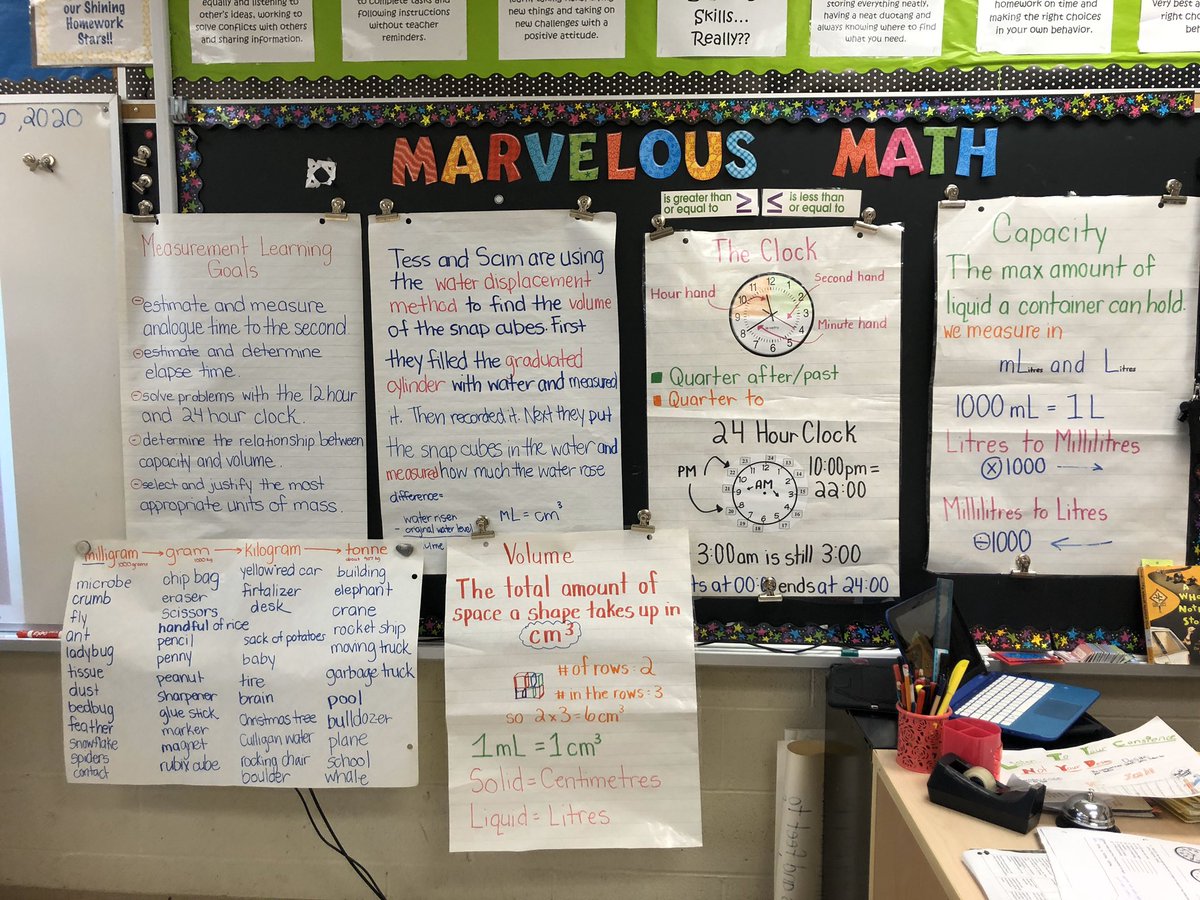 our Shining
Homework
Stars!!
equally and listening to
other's ideas, working to
solve conflicts with others
and sharing information.
to complete tasks and
following instructions
without teacher
reminders.
new things and taking on
new challenges with a
positive attitude.
Skills...
Really??
storing everything neatly,
having a neat duotang and
always knowing where to
find what you need.
homework on time and
making the right choices
in your own behavior.
Very best a
right choi
beh
,2020
MARVELOUS MATH
is greater than
or equal to ≥
≤ is less than
or equal to
Measurement Learning
Goals
estimate and measure
analogue time to the second.
estimate and determine
elapse time.
solve problems with the 12 hour
and 24 hour clock.
determine the relationship between
capacity and volume.
select and justify the most
appropriate units of mass.
Tess and Sam are using
the water displacement
method to find the volume
of the snap cubes. First
they filled the graduated
cylinder with water and measured
it. Then recorded it. Next they put
the snap cubes in the water and
measured how much the water rose
difference=
water risen
- original water level
lume
mL = cm³
The Clock
Hour hand
Second hand
Minute hand
12 1 2 3 4 5 6 7 8 9 10 11
Quarter after/past
Quarter to
24 Hour Clock
PM
AM
12 1 2 3 4 5 6 7 8 9 10 11
13 14 15 16 17 18 19 20 21 22 23 24
10:00pm=
22:00
3:00am is still 3:00
ts at 00: ends at 24:00
Capacity
The max amount of
liquid a container can hold.
we measure in
mLitres and Litres
1000 mL = 1 L
Litres to Millilitres
×1000 →
Millilitres to Litres
÷1000 ←
milligram → gram → kilogram → tonne
1000 grams
microbe
crumb
fly
ant
ladybug
tissue
dust
bedbug
feather
snowflake
spiders
contact
chip bag
eraser
scissors
handful of rice
pencil
penny
peanut
sharpener
glue stick
marker
magnet
rubix cube
yellow red car
firtalizer
desk
sack of potatoes
baby
tire
brain
Christmas tree
Culligan water
rocking chair
boulder
building
elephant
crane
rocket ship
moving truck
garbage truck
pool
bulldozer
plane
school
whale
Volume
The total amount of
space a shape takes up in
cm³
# of rows: 2
# in the rows: 3
so 2 x 3 = 6cm³
1mL = 1cm³
Solid = Centimetres
Liquid = Litres
To Your Conscience
Not Your